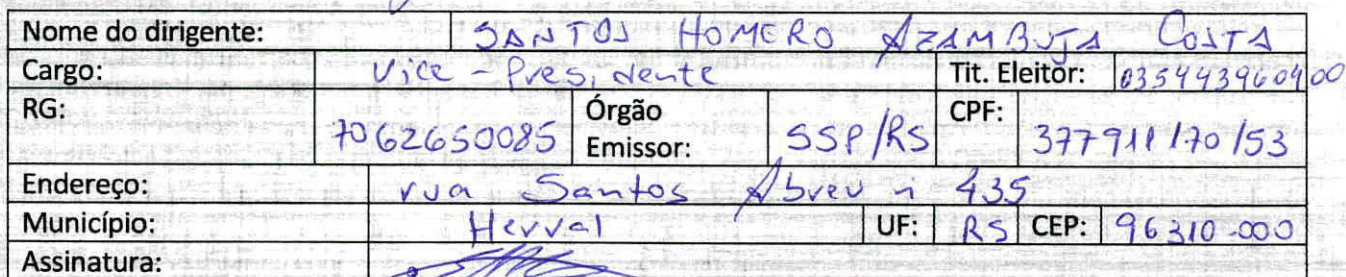 Nome do dirigente: SANTOS HOMERO AZAMBUJA COSTA
Cargo: Vice-Presidente Tit. Eleitor: 035443960400
RG: 7062650085 Órgão Emissor: SSP/RS CPF: 377911170/53
Endereço: rua Santos Abreu n 435
Município: Herval UF: RS CEP: 96310-000
Assinatura: